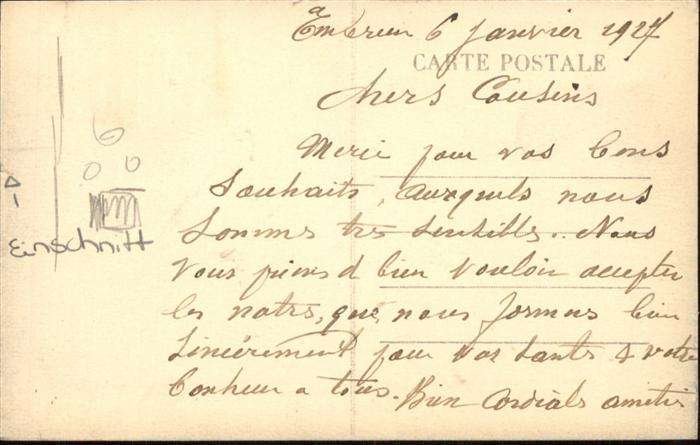 Embrun 6 Janvier 1927
CARTE POSTALE
Chers Cousins
Merci pour vos bons
Souhaits, auxquels nous
Sommes très sensibles. Nous
Vous prions d bien vouloir accepter
les notres, que nous formons bien
Sincèrement pour vos santés & votre
bonheur a tous. Bien Cordials amitiés
6
Einschnitt